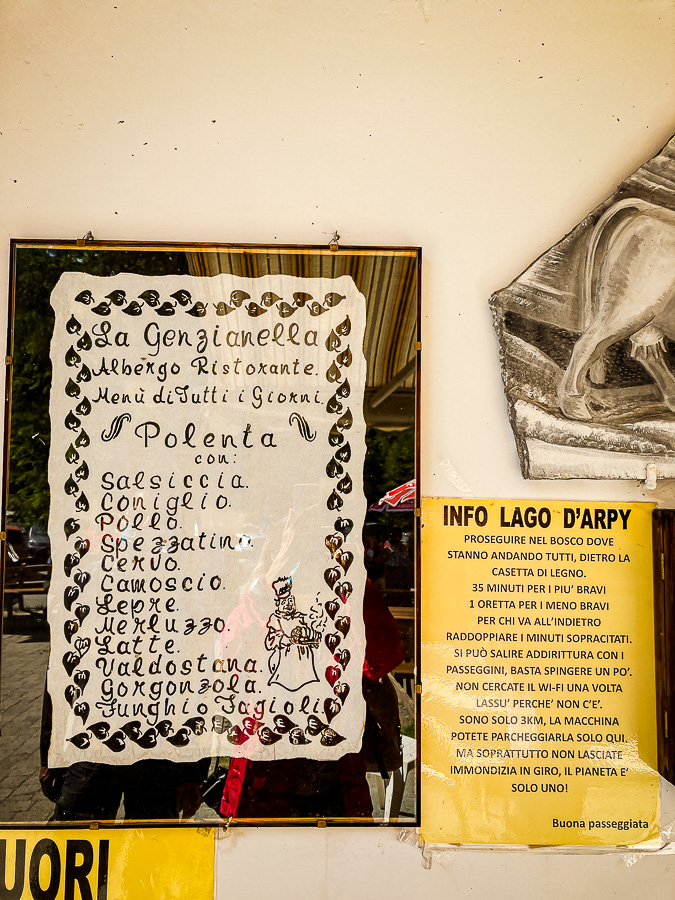 La Genzianella
Albergo Ristorante.
Menù di Tutti i Giorni.
Polenta
con:
Salsiccia.
Coniglio.
Pollo.
Spezzatino.
Cervo.
Camoscio.
Lepre.
Merluzzo.
Latte.
Valdostana.
Gorgonzola.
Funghi o Fagioli.
INFO LAGO D'ARPY
PROSEGUIRE NEL BOSCO DOVE
STANNO ANDANDO TUTTI, DIETRO LA
CASETTA DI LEGNO.
35 MINUTI PER I PIU' BRAVI
1 ORETTA PER I MENO BRAVI
PER CHI VA ALL'INDIETRO
RADDOPPIARE I MINUTI SOPRACITATI.
SI PUÒ SALIRE ADDIRITTURA CON I
PASSEGGINI, BASTA SPINGERE UN PO'.
NON CERCATE IL WI-FI UNA VOLTA
LASSU' PERCHE' NON C'E'.
SONO SOLO 3KM, LA MACCHINA
POTETE PARCHEGGIARLA SOLO QUI.
MA SOPRATTUTTO NON LASCIATE
IMMONDIZIA IN GIRO, IL PIANETA E'
SOLO UNO!
Buona passeggiata
UORI